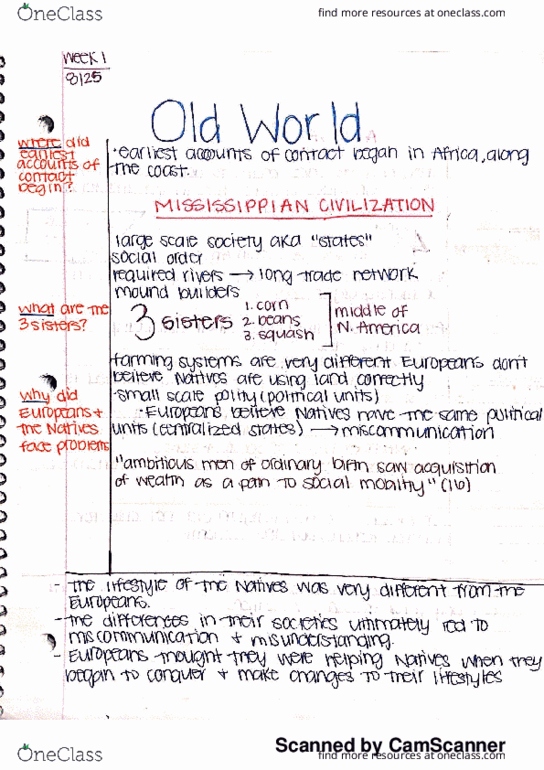 OneClass
find more resources at oneclass.com
Week 1
8/25
Old World
where did
earliest
accounts of
contact
begin?
•earliest accounts of contact began in Africa, along
the coast.
MISSISSIPPIAN CIVILIZATION
large scale society aka "states"
social order
required rivers → long trade network
mound builders
what are the
3 sisters?
3 sisters
1. corn
2. beans
3. squash
middle of
N. America
farming systems are very different Europeans don't
believe Natives are using land correctly
-small scale polity (political units)
why did
Europeans +
the Natives
face problems
•Europeans believe Natives have the same political
units (centralized states) → miscommunication
"ambitious men of ordinary birth saw acquisition
of wealth as a path to social mobility" (16)
- the lifestyle of the Natives was very different from the
Europeans.
- the differences in their societies ultimately led to
miscommunication + misunderstanding.
- Europeans thought they were helping Natives when they
began to conquer + make changes to their lifestyles
Scanned by CamScanner
OneClass
find more resources at oneclass.com